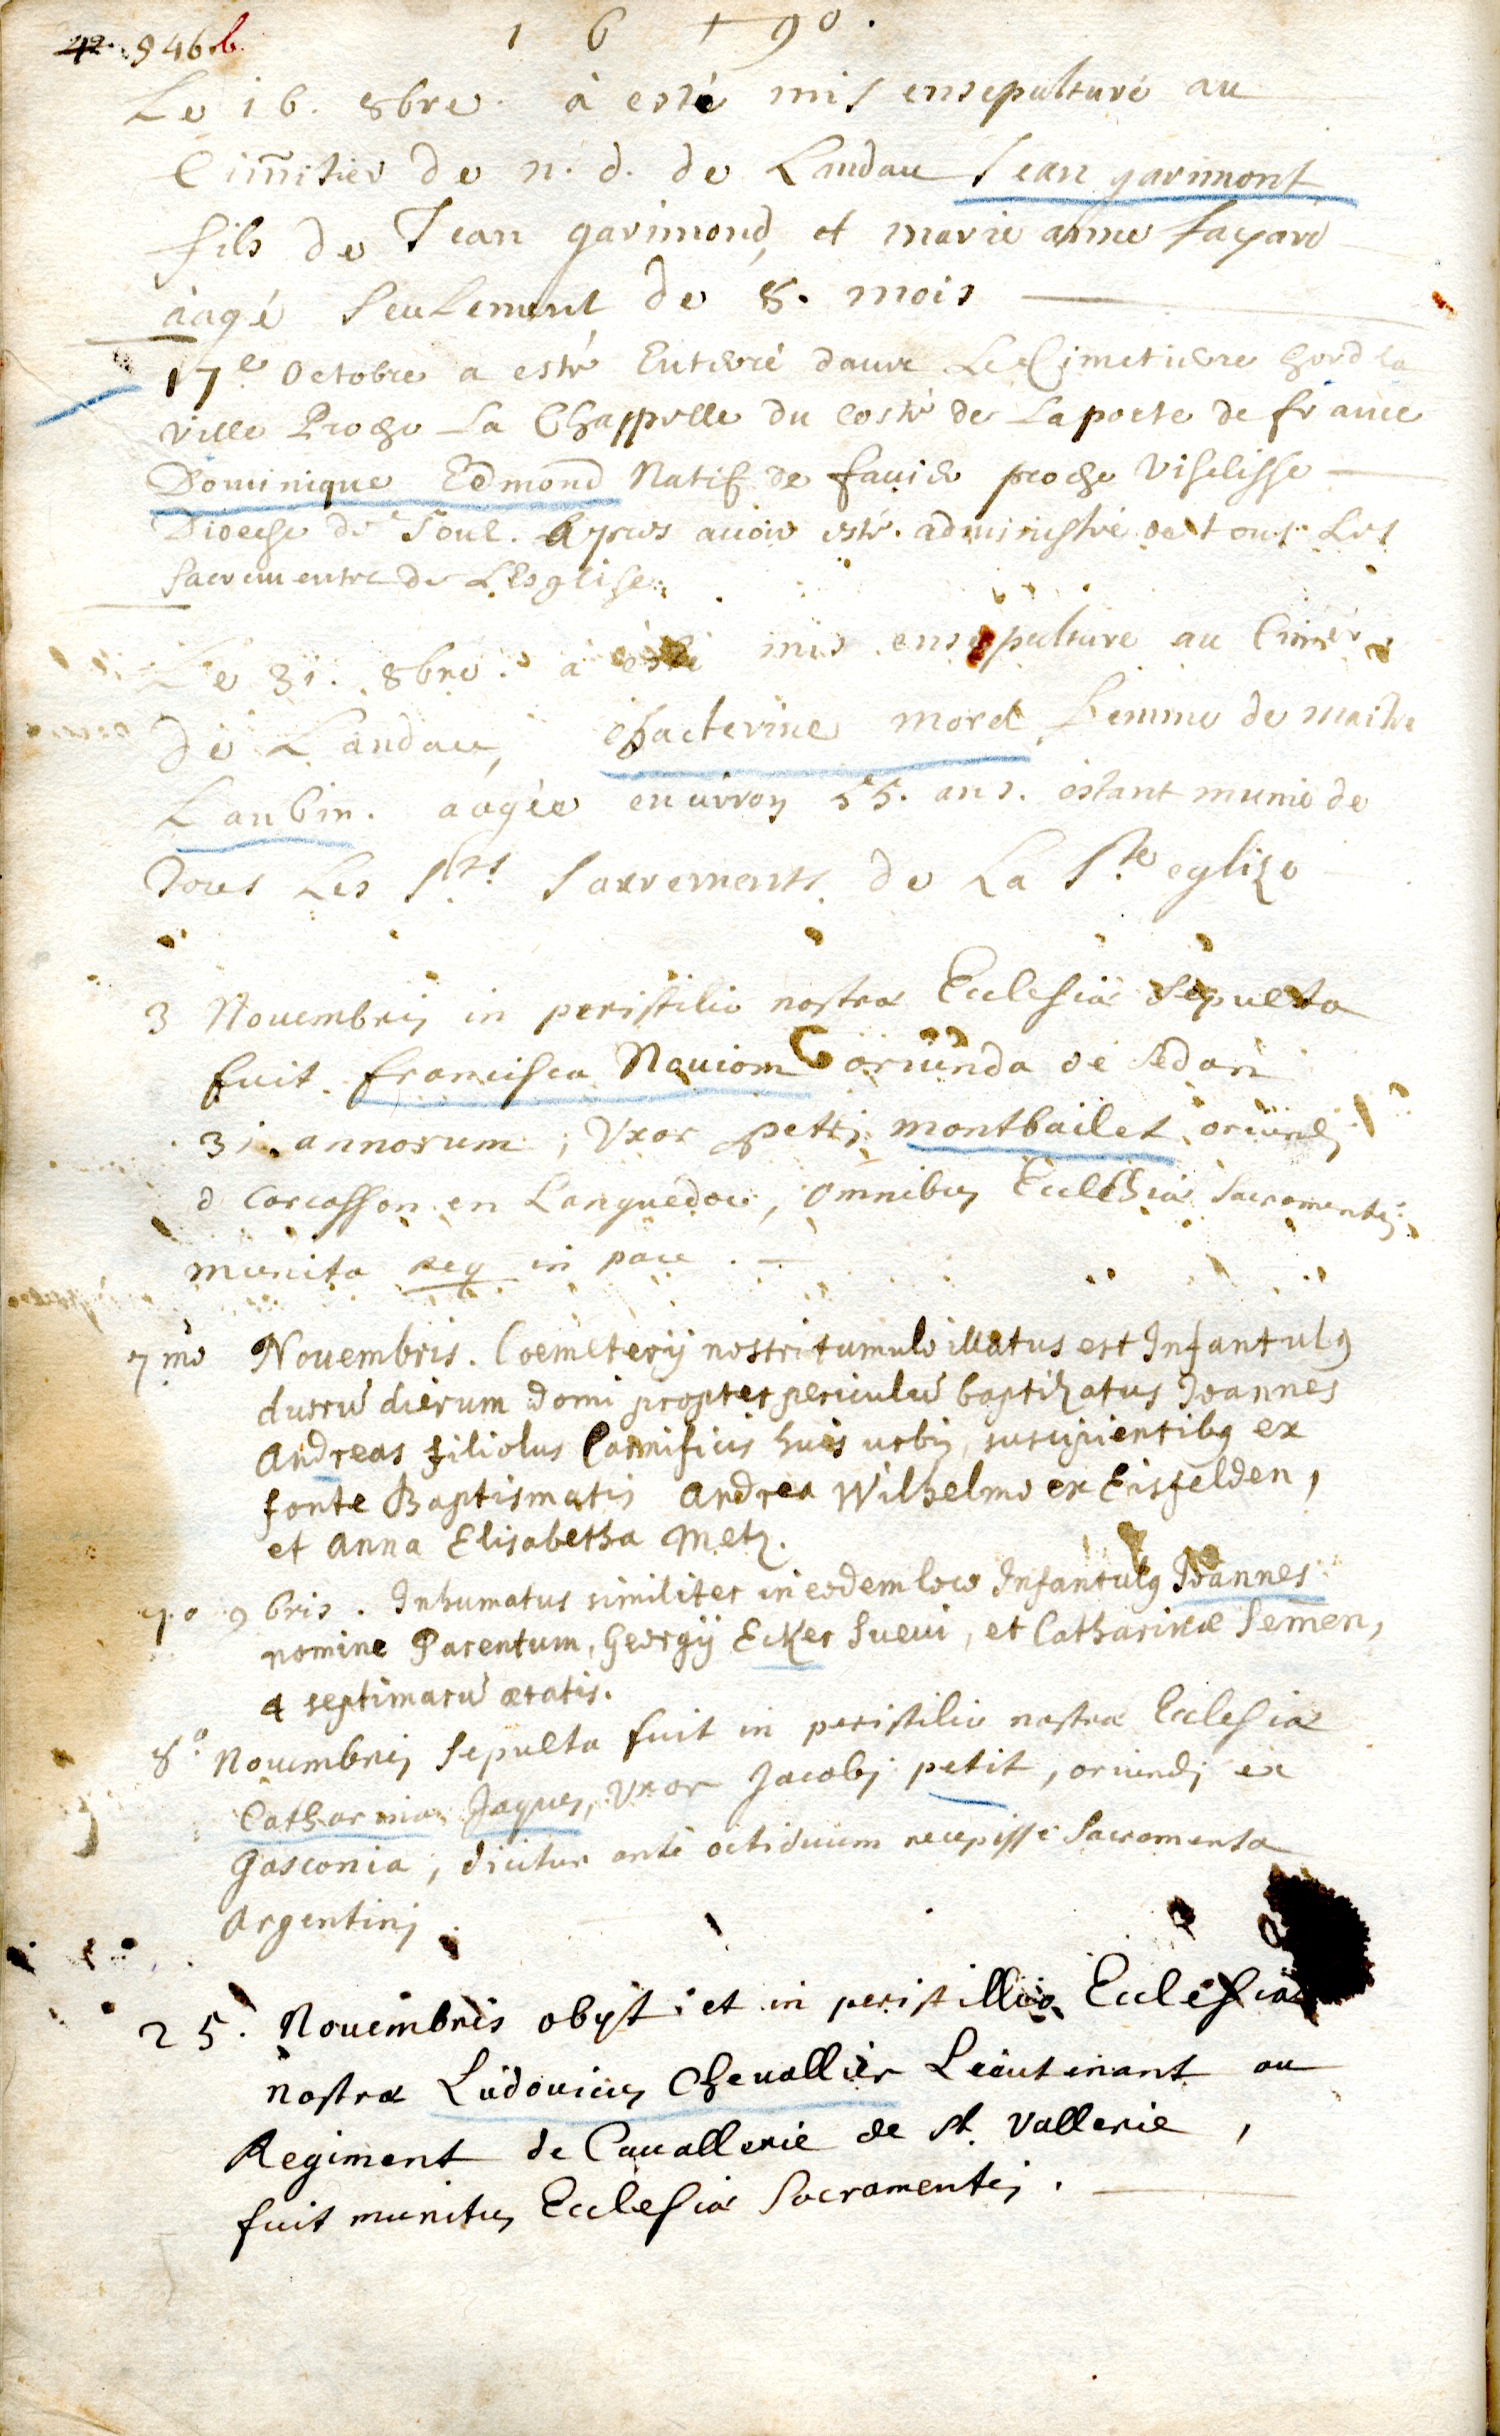 42. 846 b.
1 6 + 90.
Le 16. 8bre. à esté mis ensepulturé au
Cim̃itier de n. d. de Landau Jean garimont
fils de Jean garimond, et marie anne fayard
àagé seulement de 8. mois
17e. Octobre a esté Enterré dauns Le Cimetiere hord la
ville Proche La Chappelle du costé de La porte de france
Dominique Edmond Natif de favier proche Viselisse
Diocesse de Toul. Apres avoir esté administré de tous Les
sacrements de L'Esglise.
Le 31. 8bre. à esté mis ensepulture au Cimer
de Landau, chacterine morel femme de maitre
Laubin. aagée environ 55. ans. estant munie de
Tous Les Sts. Sacrements de La Ste eglize
3 Novembris in peristilio nostræ Ecclesiæ Sepulta
fuit. francisca Naviom oriunda de Sedan
31. annorum, Uxor petri montbailet oriundi
d Carcasson en Languedoc, omnibus Ecclesiæ Sacramentis
munita req in pace. —
7mo Novembris. Coemeterij nostri tumulo illatus est Infantulq
duorũ dierum domi propter periculũ baptizatus Joannes
Andreas filiolus Carnificis huis urbis, suscipientibq ex
fonte Baptismatis Andrea Wilhelmo ex Eisfelden,
et Anna Elisabetha Metz.
7.o 9bris. Inhumatus similiter in eodem loco Infantulq Joannes
nomine Parentum, Georgij Ecker Suevi, et Catharinæ Semen,
4 septimarũ ætatis.
8o. Novembris Sepulta fuit in peristilio nostræ Ecclesiæ
Catharinia Jaques, Uxor Jacobi petit, oriundi ex
Gasconia, dicitur ante octiduum recepisse Sacramenta
Argentini.
25. Novembris obyt et in peristillio Ecclesiæ
nostræ Ludovicus Chevallier Lieutenant au
Regiment de Cavallerie de st. Vallerie,
fuit munitus Ecclesiæ Sacramentis.